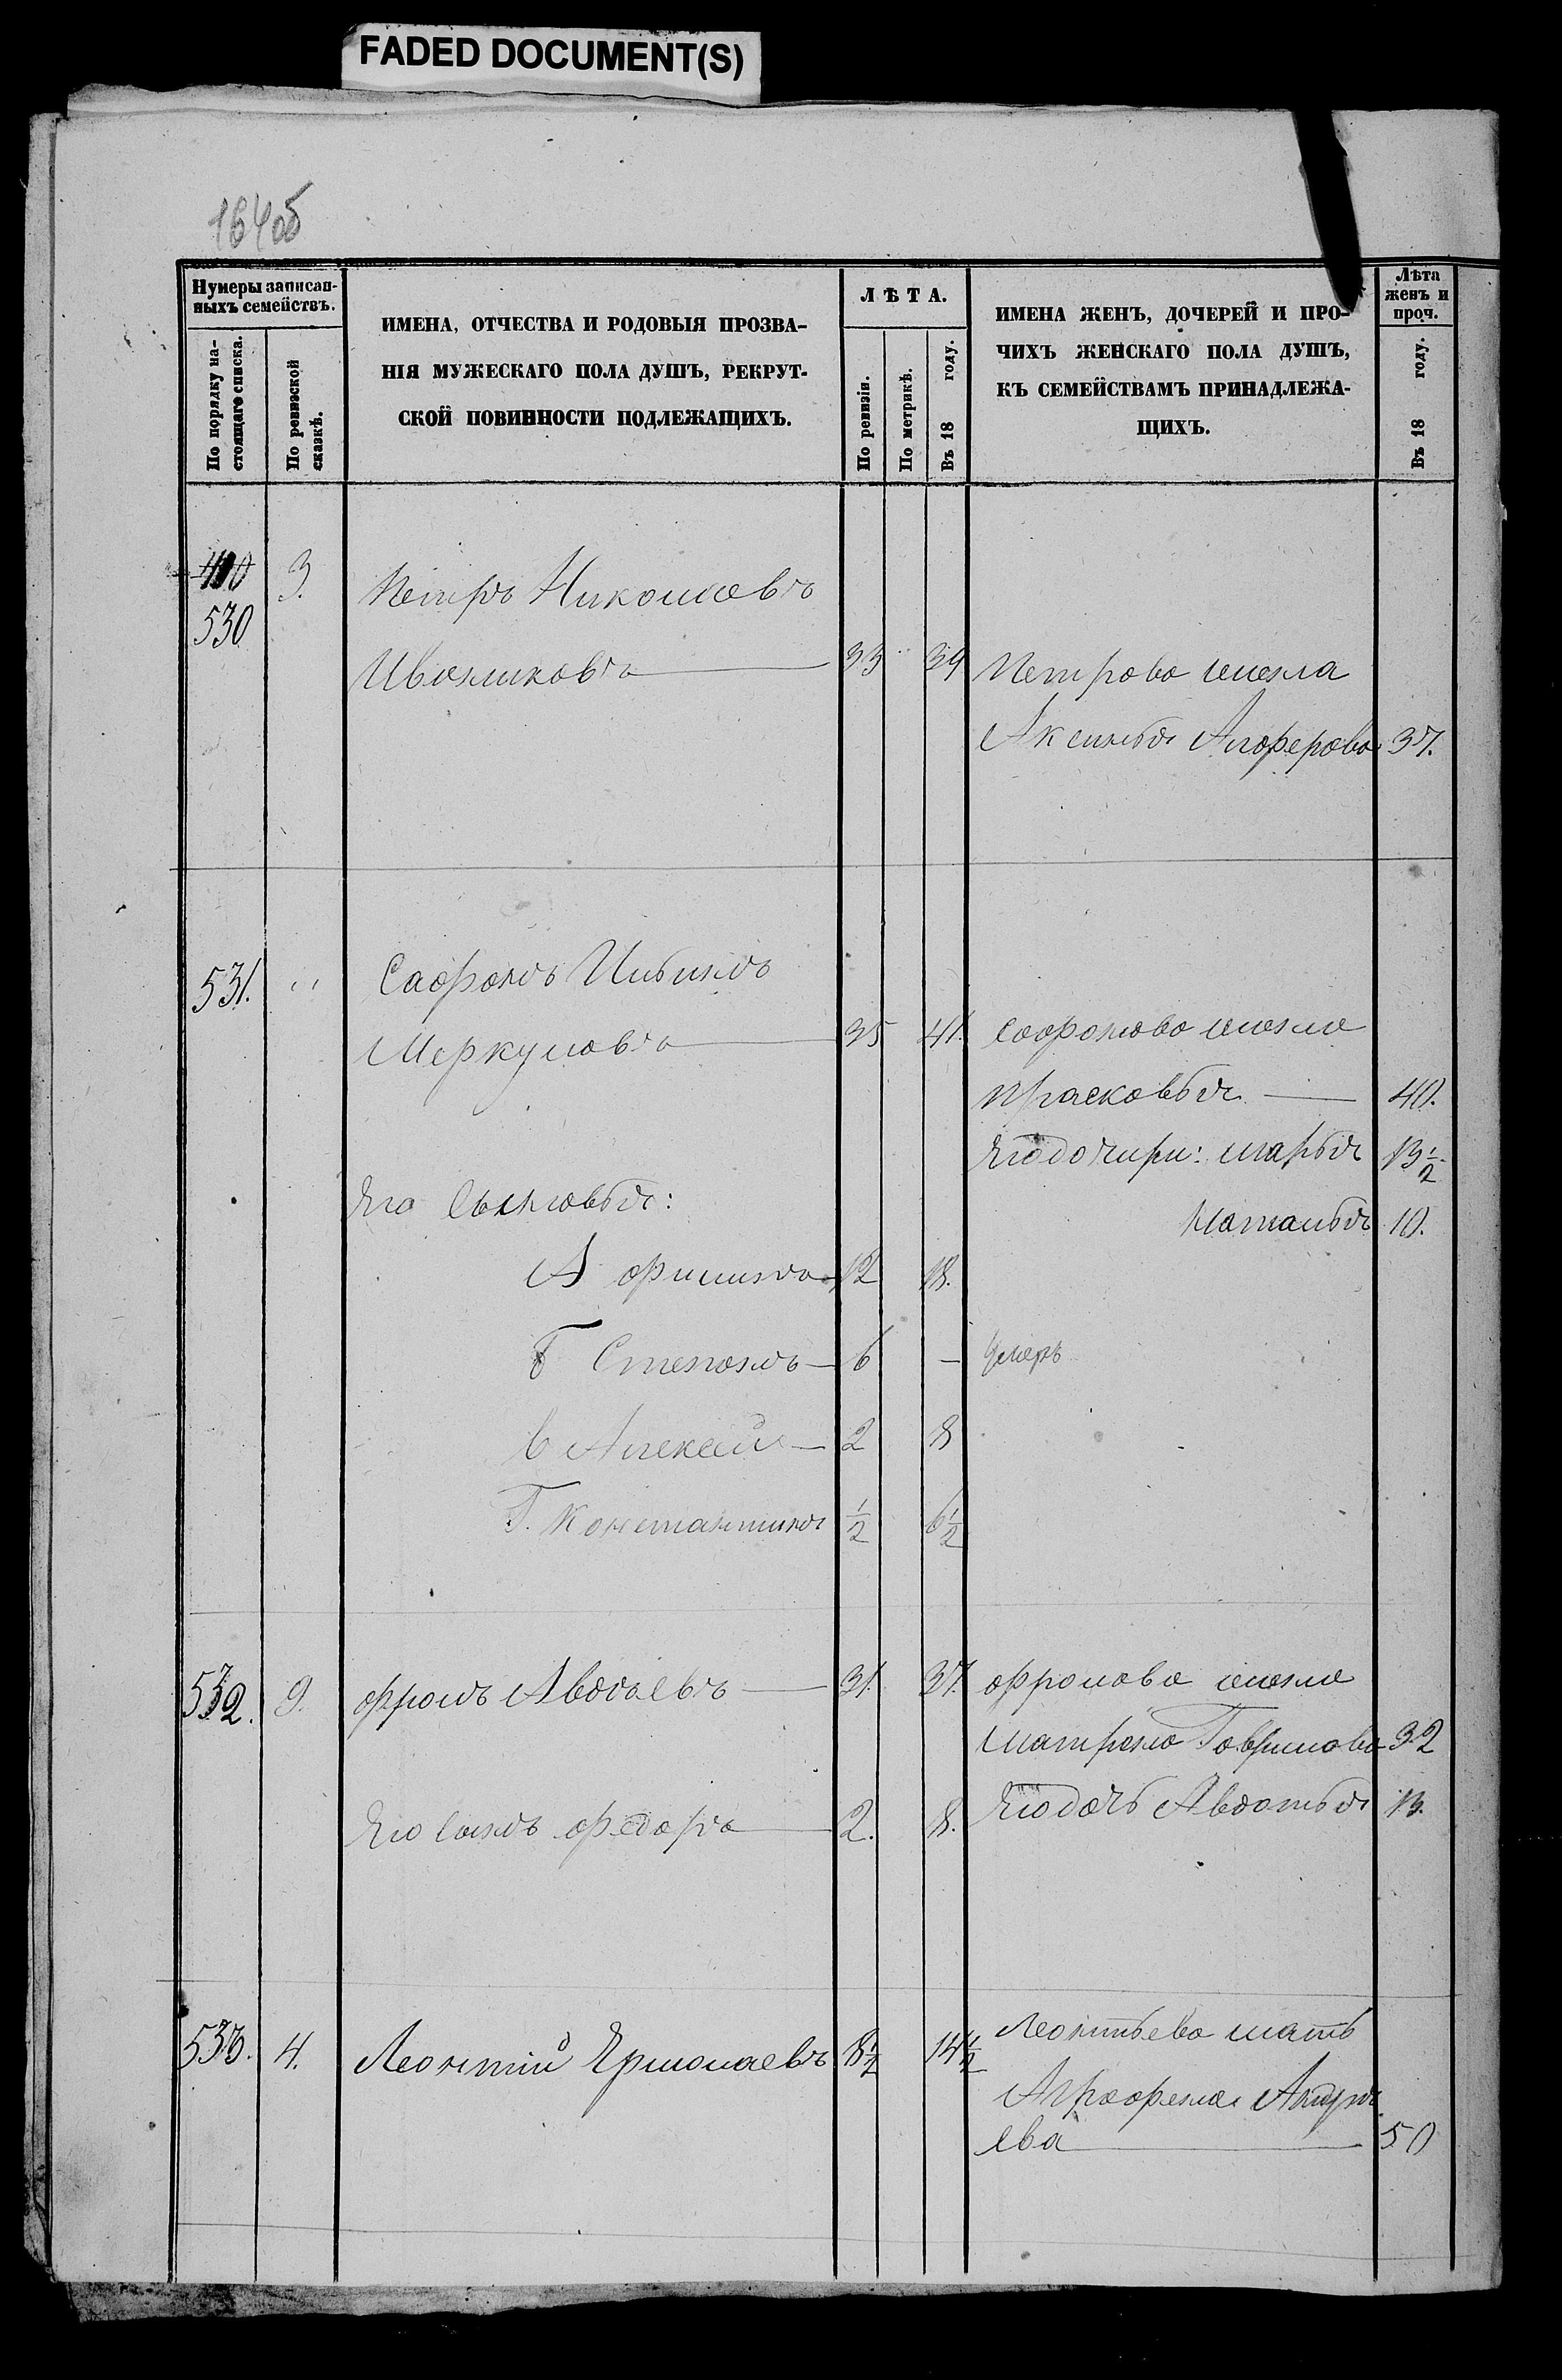 FADED DOCUMENT(S)
164об
Нумеры записан-
ныхъ семействъ.
По порядку на-
стоящаго списка.
По ревизской
сказкѣ.
ИМЕНА, ОТЧЕСТВА И РОДОВЫЯ ПРОЗВА-
НІЯ МУЖЕСКАГО ПОЛА ДУШЪ, РЕКРУТ-
СКОЙ ПОВИННОСТИ ПОДЛЕЖАЩИХЪ.
ЛѢТА.
По ревизіи.
По метрикѣ.
Въ 18 году.
ИМЕНА ЖЕНЪ, ДОЧЕРЕЙ И ПРО-
ЧИХЪ ЖЕНСКАГО ПОЛА ДУШЪ,
КЪ СЕМЕЙСТВАМЪ ПРИНАДЛЕЖА-
ЩИХЪ.
Лѣта
женъ и
проч.
Въ 18 году.
3. Петръ Николаевъ
530
Иванниковъ 33 39 Петрова жена
Аксинья Алферова 37.
531. " Сафронъ
Меркуловъ 35 41. Сафронова жена
Прасковья — 40.
Его дочири: Марья 13 1/2
Его Сыновья: Наталья 10.
А Филипъ 12 18.
Б Степанъ — 6 — умеръ
в Алексей — 2 8
Г. Константинъ 1/2 6 1/2
532. 9. Фролъ Авдѣевъ — 31. 37. Фролова жена
Матрена Гаврилова 32
Его Сынъ Федоръ 2. 8. Его дочь Авдотья 13.
533. 4. Леонтий Ермолаевъ 8 1/2 14 1/2 Леонтьева мать
Аграфена Андре
ева 50